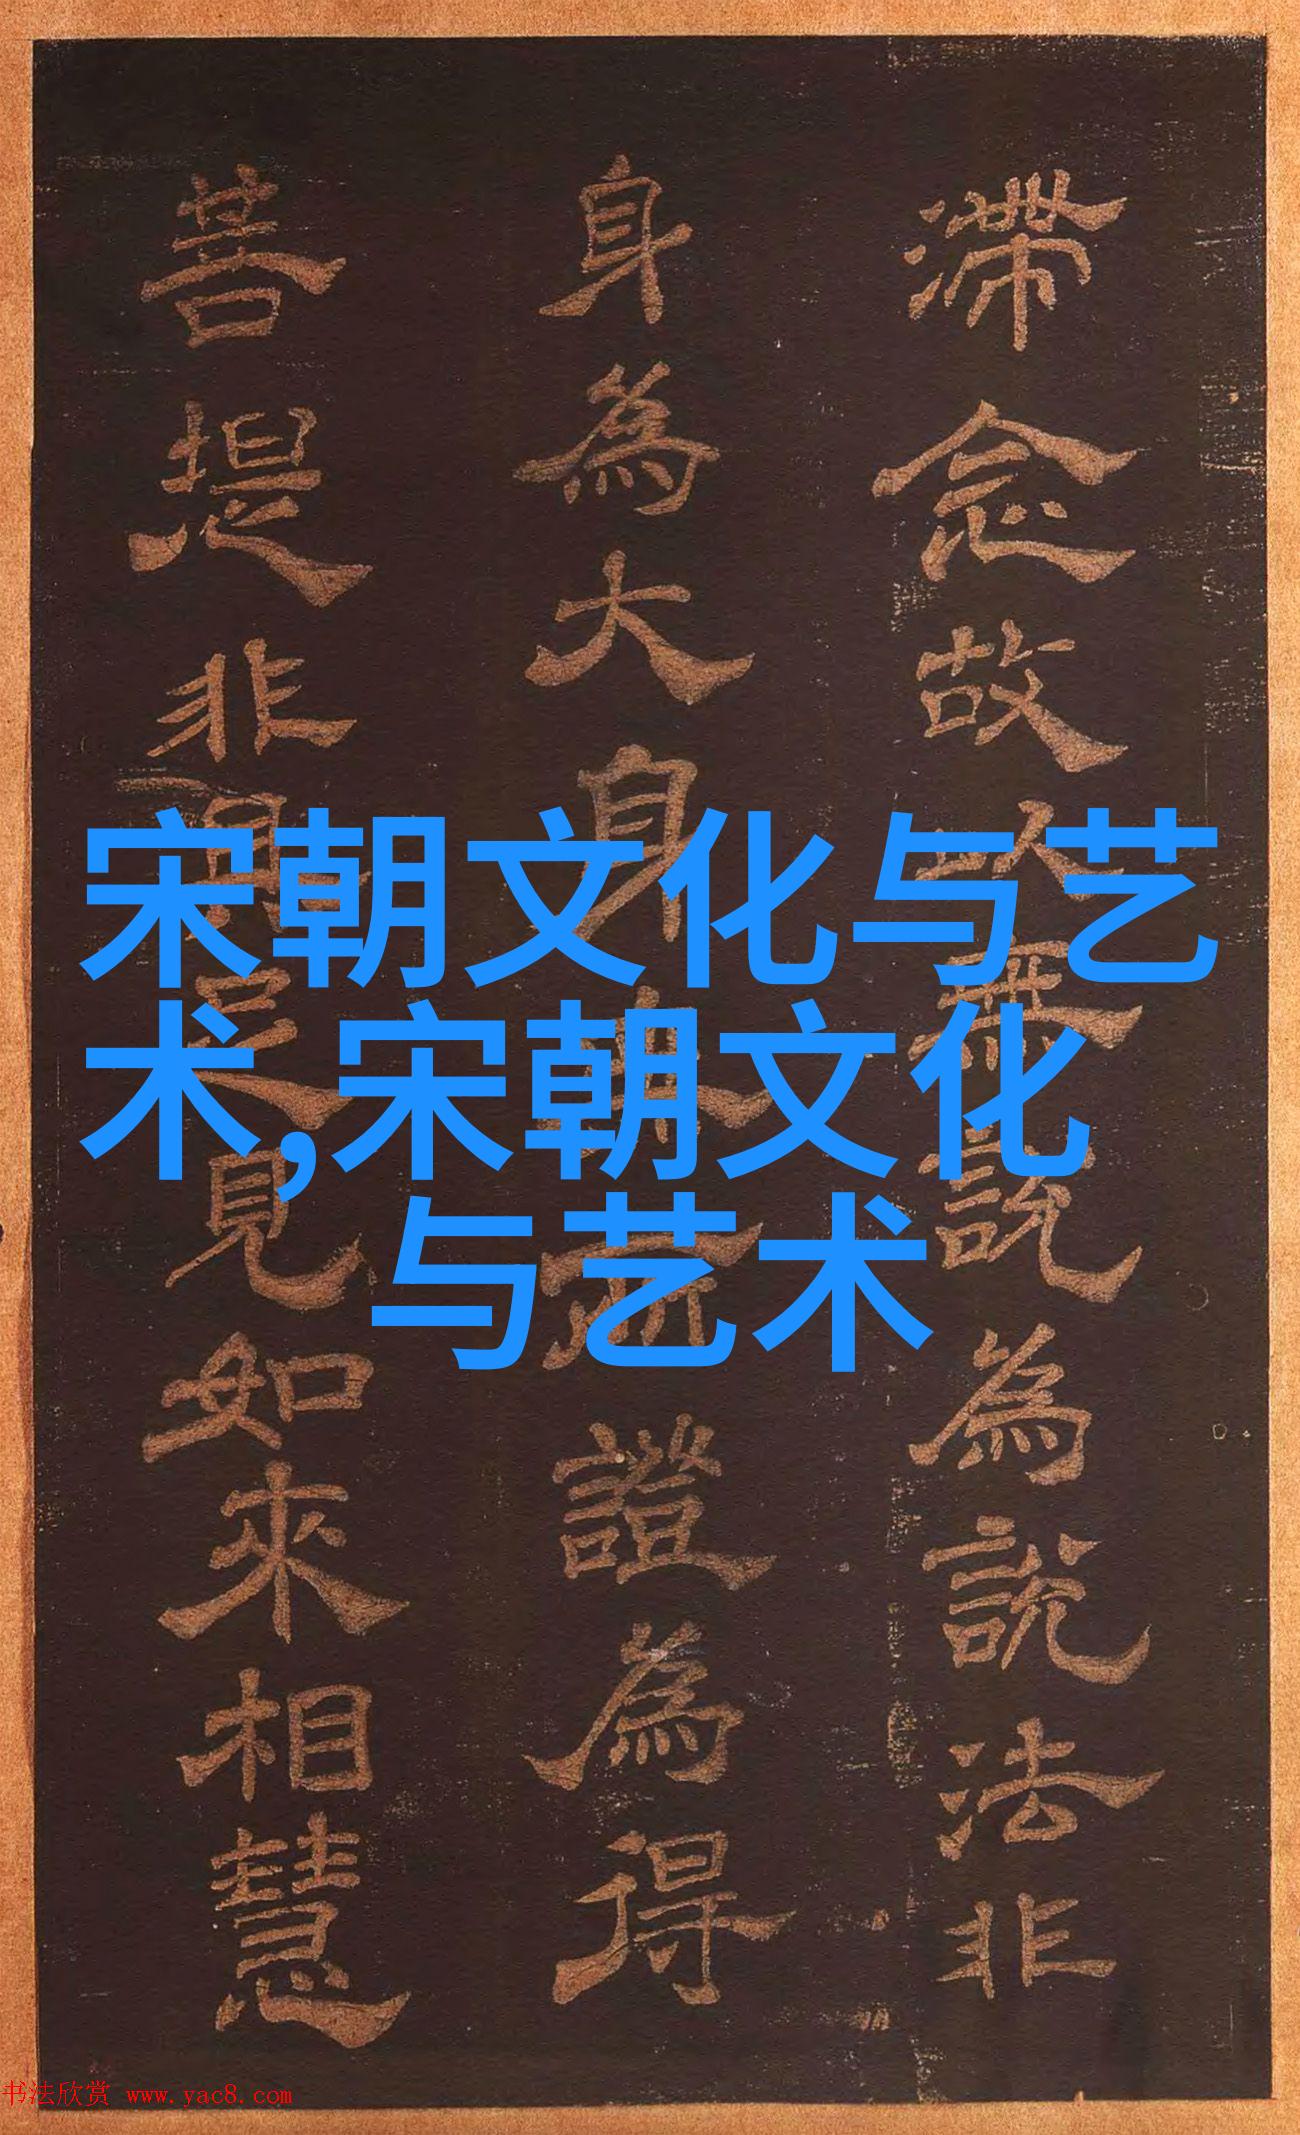 滯念故以無說為說法非
身為大身證為得
菩提非具足見如來相慧
宋朝文化与艺
术,宋朝文化
与艺术
书法欣赏 www.yac8.com